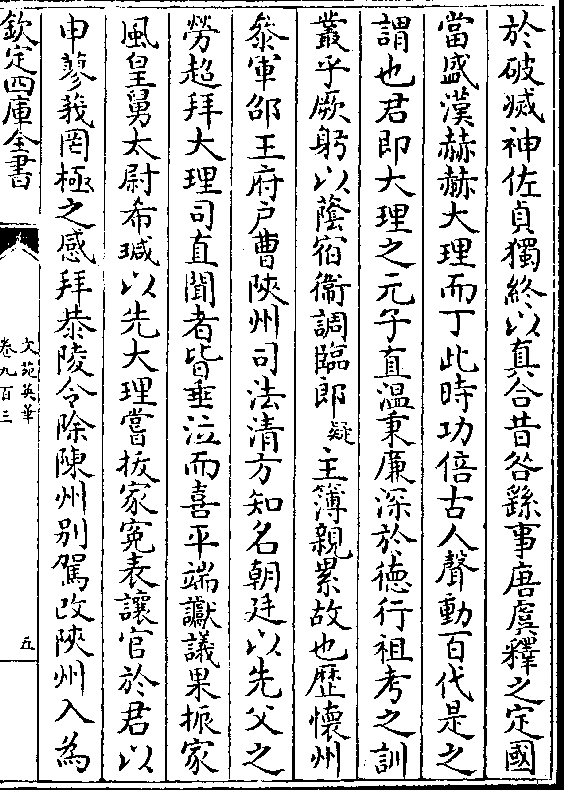 於破滅神佐貞獨終以真合昔咎繇事唐虞釋之定國
當盛漢赫赫大理而丁此時功倍古人聲動百代是之
謂也君即大理之元子直温秉廉深於德行祖考之訓
叢乎厥躬以蔭宿衞調臨郎疑主簿親累故也歴懷州
叅軍邠王府户曹陜州司法清方知名朝廷以先父之
勞超拜大理司直聞者皆垂泣而喜平端讞議果振家
風皇舅太尉希瑊以先大理嘗拔家寃表讓官於君以
申蓼莪罔極之感拜恭陵令除陳州别駕改陜州入為
欽定四庫全書
文苑英華
卷九百三
五